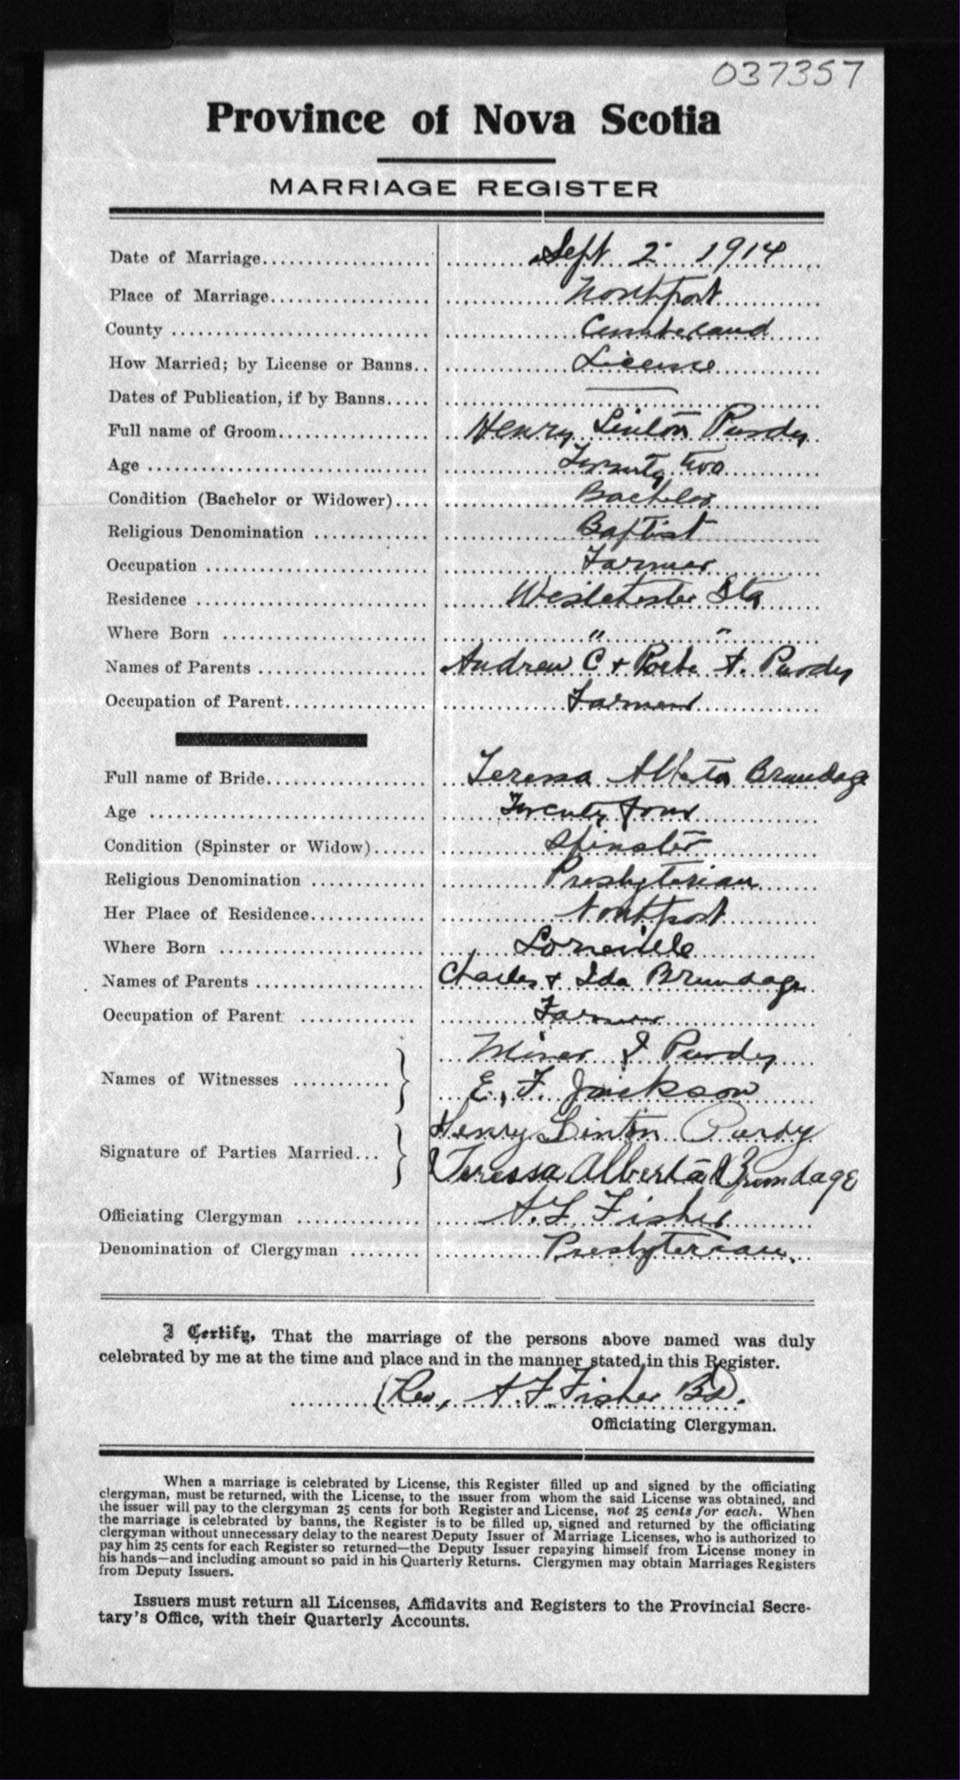 037357
Province of Nova Scotia
MARRIAGE REGISTER
Date of Marriage.................... Sept 2 1914
Place of Marriage.................... Northport
County .................... Cumberland
How Married; by License or Banns.. License
Dates of Publication, if by Banns..... ———
Full name of Groom.................... Henry Linton Purdy
Age .................... Twenty two
Condition (Bachelor or Widower).... Bachelor
Religious Denomination ............ Baptist
Occupation .................... Farmer
Residence .................... Westchester Sta
Where Born .................... " "
Names of Parents .................... Andrew C + A. Purdy
Occupation of Parent.................... Farmer
Full name of Bride.................... Teressa Alberta Brundage
Age .................... Twenty four
Condition (Spinster or Widow)...... Spinster
Religious Denomination ............ Presbyterian
Her Place of Residence............ Northport
Where Born .................... Lorneville
Names of Parents .................... Charles + Ida Brundage
Occupation of Parent ............ Farmer
Names of Witnesses .......... } Miner J Purdy
E. F. Jackson
Signature of Parties Married... } Henry Linton Purdy
Teressa Alberta Brundage
Officiating Clergyman ............ A. F. Fisher
Denomination of Clergyman ........ Presbyterian.
I Certify, That the marriage of the persons above named was duly
celebrated by me at the time and place and in the manner stated in this Register.
(Rev. A. F. Fisher BD.
Officiating Clergyman.
When a marriage is celebrated by License, this Register filled up and signed by the officiating
clergyman, must be returned, with the License, to the issuer from whom the said License was obtained, and
the issuer will pay to the clergyman 25 cents for both Register and License, not 25 cents for each. When
the marriage is celebrated by banns, the Register is to be filled up, signed and returned by the officiating
clergyman without unnecessary delay to the nearest Deputy Issuer of Marriage Licenses, who is authorized to
pay him 25 cents for each Register so returned—the Deputy Issuer repaying himself from License money in
his hands—and including amount so paid in his Quarterly Returns. Clergymen may obtain Marriages Registers
from Deputy Issuers.
Issuers must return all Licenses, Affidavits and Registers to the Provincial Secre-
tary's Office, with their Quarterly Accounts.